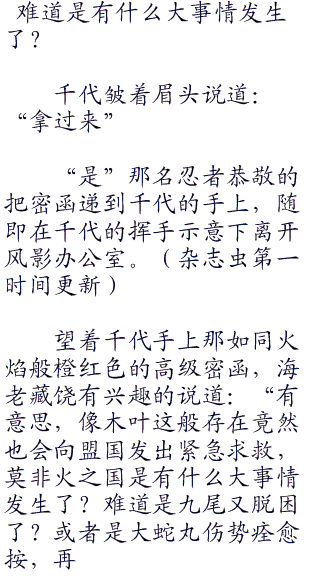 难道是有什么大事情发生
了？
千代皱着眉头说道：
“拿过来”
“是”那名忍者恭敬的
把密函递到千代的手上，随
即在千代的挥手示意下离开
风影办公室。（杂志虫第一
时间更新）
望着千代手上那如同火
焰般橙红色的高级密函，海
老藏饶有兴趣的说道：“有
意思，像木叶这般存在竟然
也会向盟国发出紧急求救，
莫非火之国是有什么大事情
发生了？难道是九尾又脱困
了？或者是大蛇丸伤势痊愈
按，再